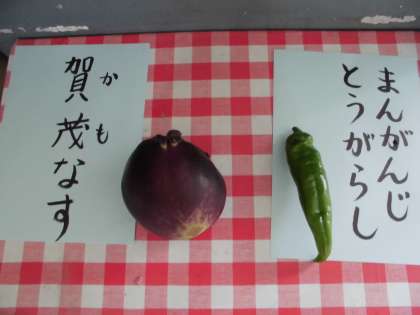 賀茂なす
かも
まんがんじ
とうがらし